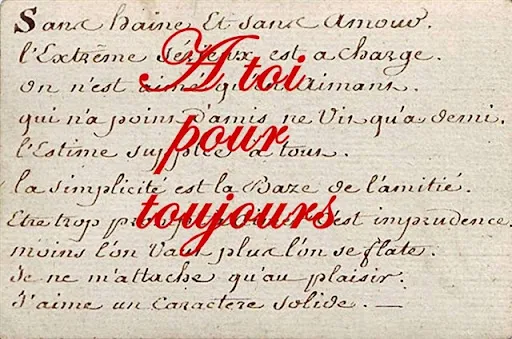 Sans haine Et sans Amour.
l'Extrême sérieux est a charge.
On n'est aimé qu'en Aimant.
qui n'a point d'amis ne Vit qu'a demi.
l'Estime supplée a tout.
la simplicité est la Baze de l'amitié.
Etre trop c'est imprudence.
moins l'on Vaut plus l'on se flate.
Je ne m'attache qu'au plaisir.
J'aime un Caractere solide. —
A toi
pour
toujours